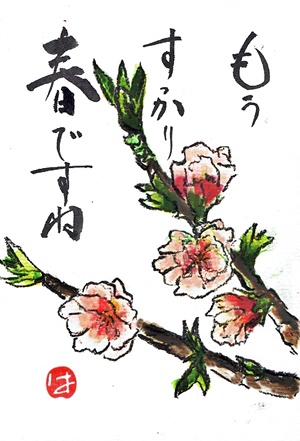 もう
すっかり
春ですね
は